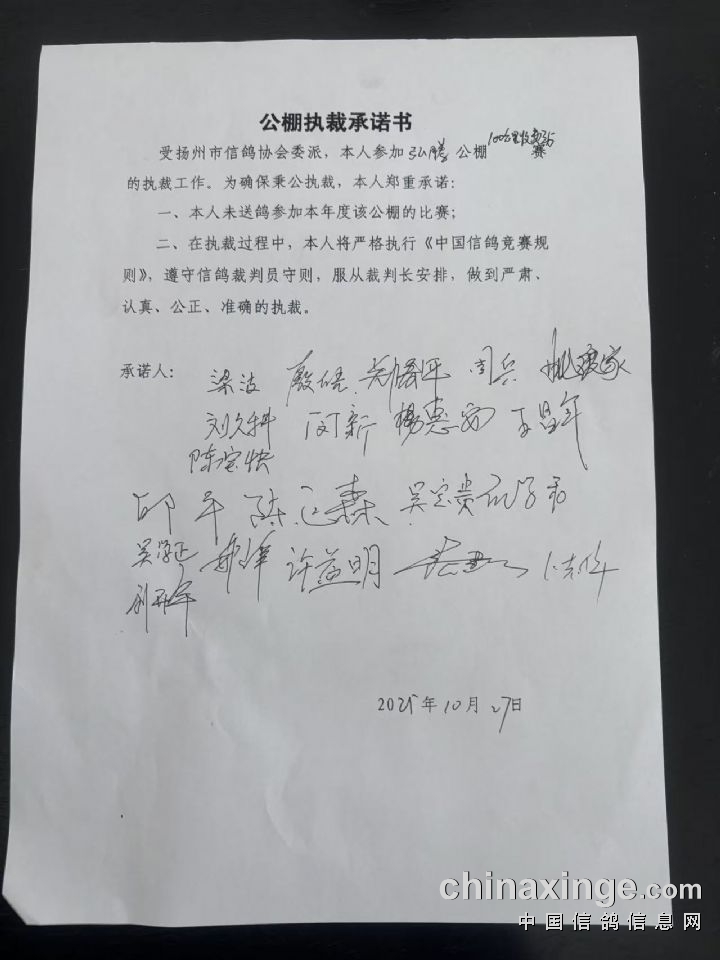 公棚执裁承诺书
受扬州市信鸽协会委派，本人参加弘腾公棚100公里收费站赛
的执裁工作。为确保秉公执裁，本人郑重承诺：
一、本人未送鸽参加本年度该公棚的比赛；
二、在执裁过程中，本人将严格执行《中国信鸽竞赛规
则》，遵守信鸽裁判员守则，服从裁判长安排，做到严肃、
认真、公正、准确的执裁。
承诺人：梁波 司兵
刘久科 闵新 杨惠 王昌年
陈宝快
邱平 陈 森 吴定贵
许益明
2025年10月27日
chinaxinge.com
中国信鸽信息网